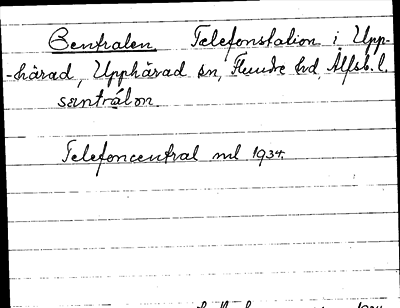 Centralen. Telefonstation i Upp-
-härad, Upphärad sn, Flundre hd, Älfsb. l.
sæntrálən.
Telefoncentral ml 1934.